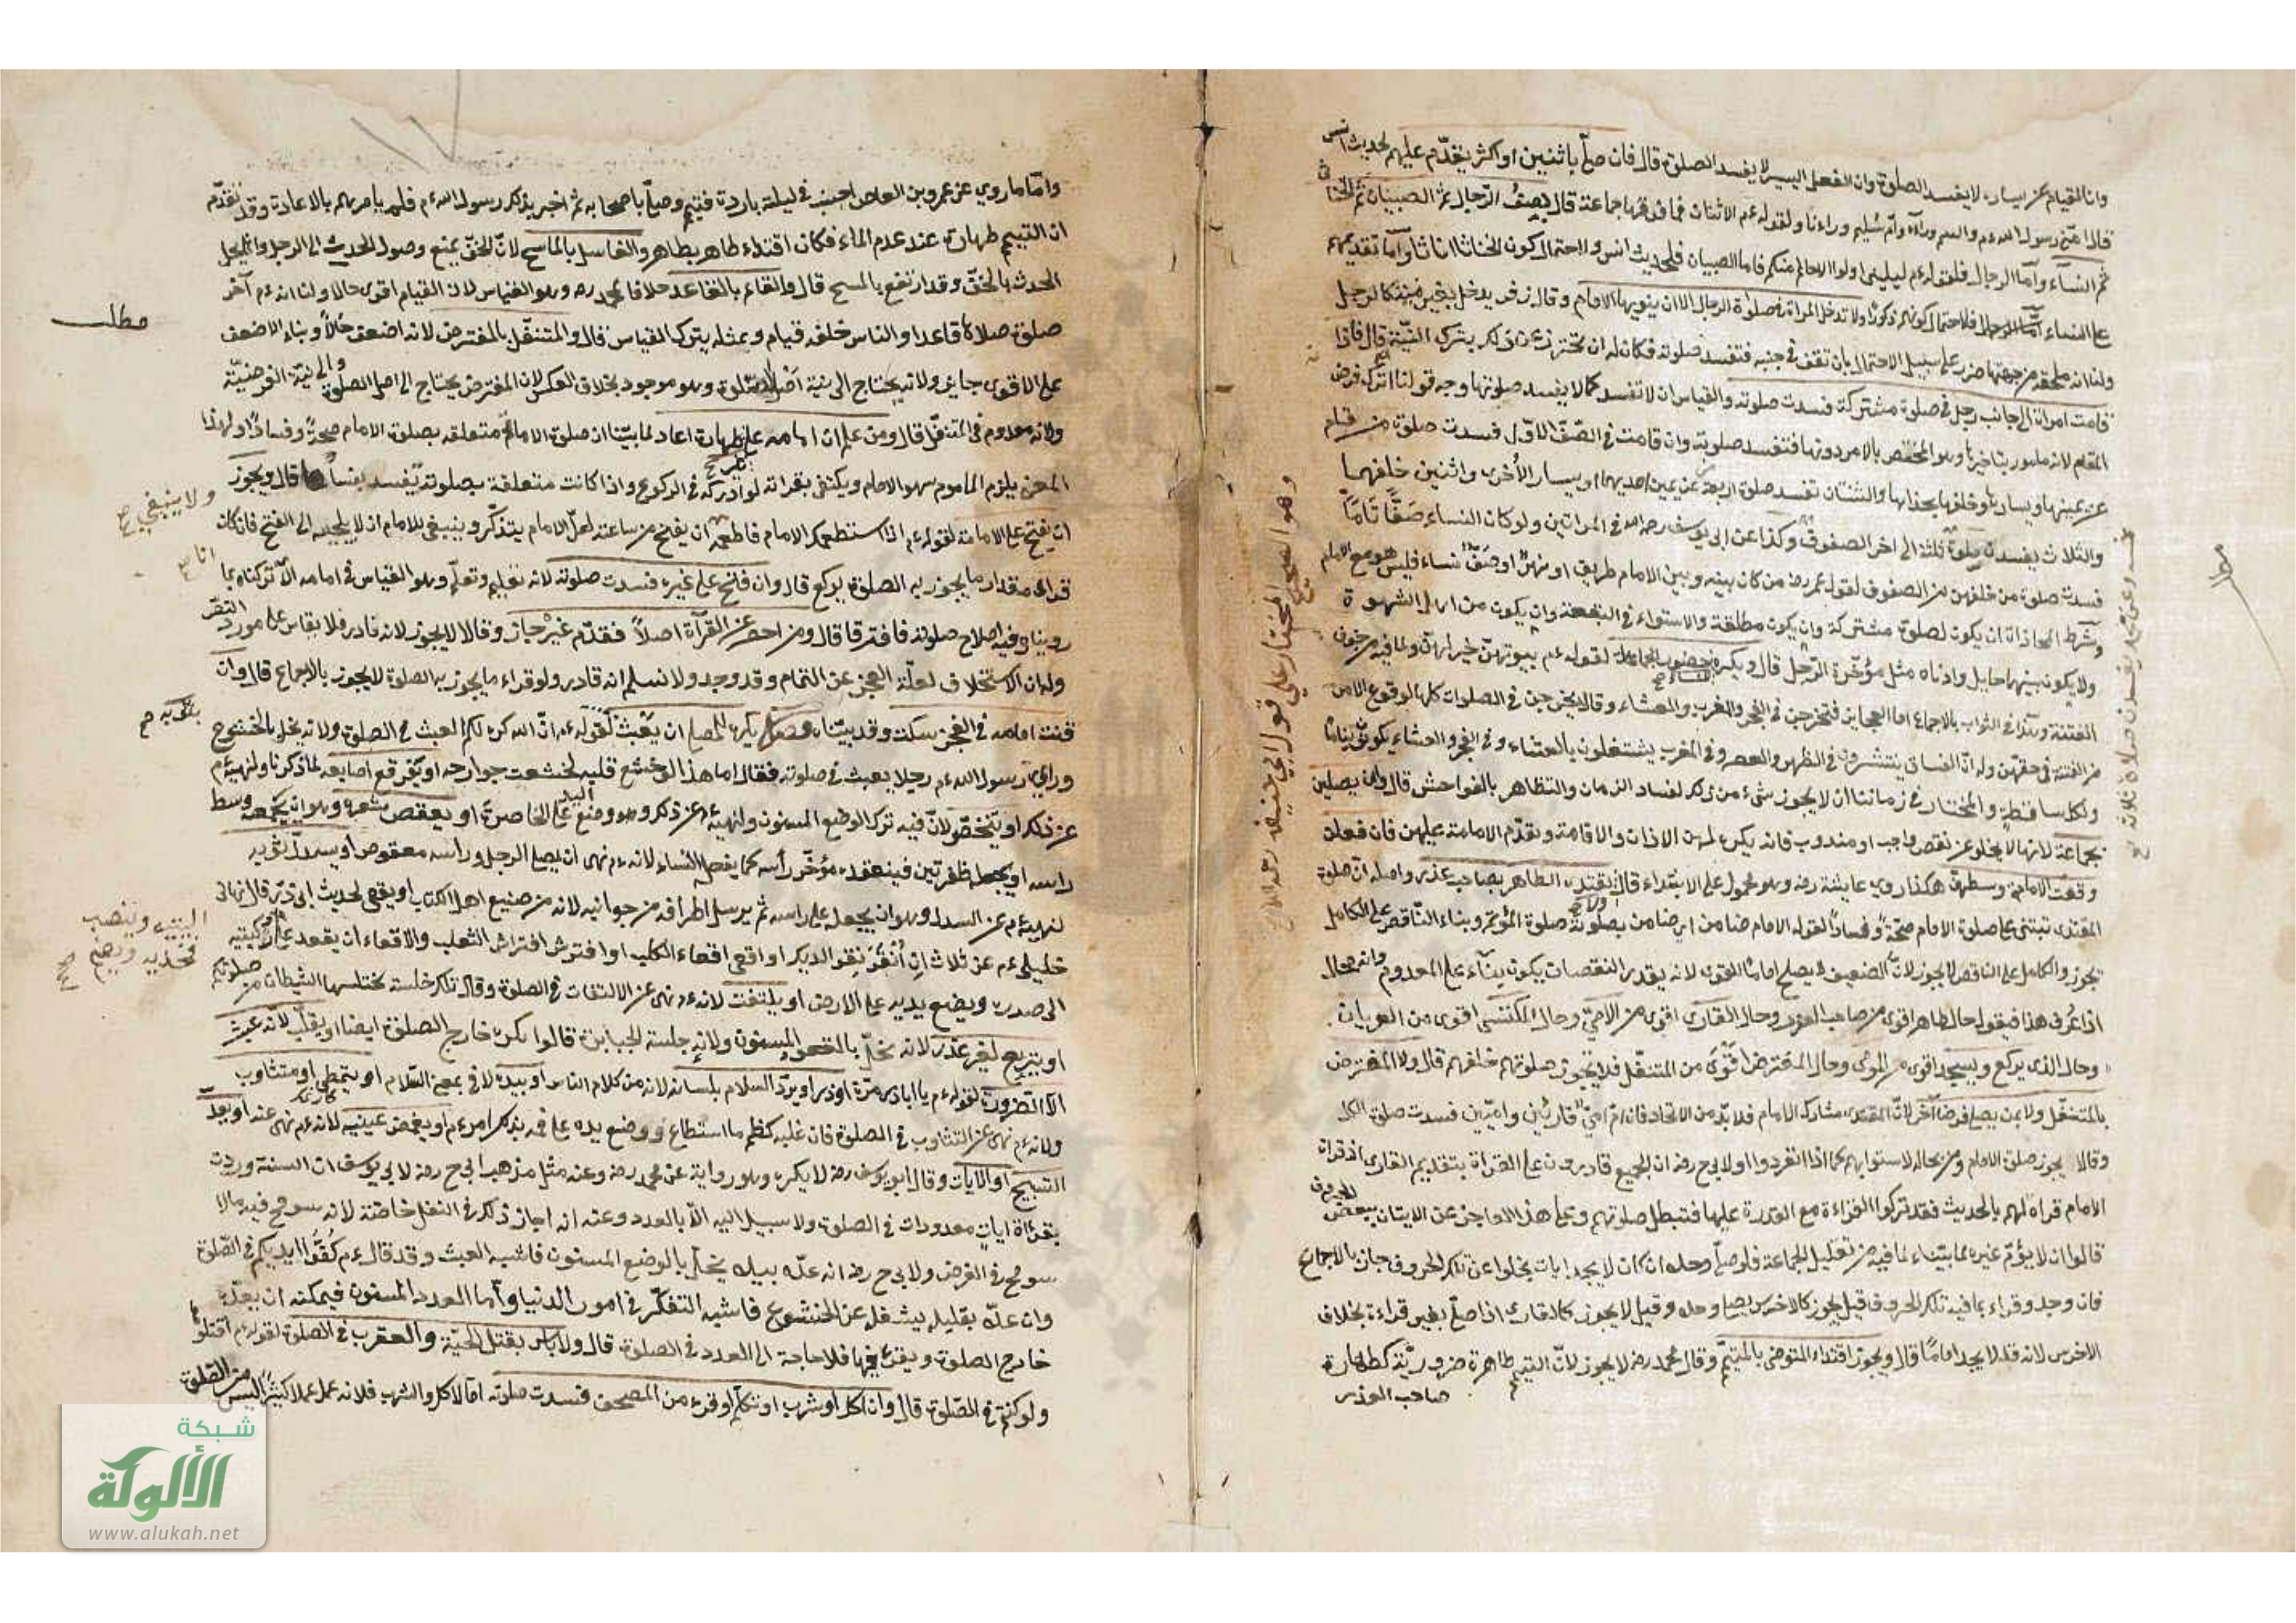 وان القيام عن يساره لا يفسد الصلوة وان الفعل اليسير لا يفسد الصلوة قال فان صلّى باثنين او اكثر يتقدّم عليهم لحديث انس
قال اقامني رسول الله ءم واليتيم وراءه وامّ سليم وراءنا ولقوله ءم الاثنان فما فوقهما جماعة قال ويصفّ الرّجال ثم الصبيان ثم الخناثى
ثم النساء وامّا الرجال فلقوله ءم ليليني اولوا الاحلام منكم فامّا الصبيان فلحديث انس ولاحتمال كون الخناثى اناثا وامّا تقديمهم
على النساء فلاحتمال كونهم ذكورا ولا تدخل المراة في صلوة الرجال الا ان ينويها الامام وقال زفر يدخل بغير نيته كالرجل
ولنا انه يلحقه من جهتها ضرر على سبيل الاحتمال بان تقف في جنبه فتفسد صلوته فكان له ان يحترز عن ذلك بترك النيّة قال فاذا
قامت امراة الى جانب رجل في صلوة مشتركة فسدت صلوته والقياس ان لا تفسد كما لا يفسد صلوتها وجه قولنا انه ترك فرض
المقام لانه مامور بتاخيرها وهو المختص بالامر دونها فتفسد صلوته وان قامت في الصّفّ الاوّل فسدت صلوة من قام
عن يمينها ويسارها وخلفها بحذائها والثنتان تفسد صلوة اربعة عن يمين احديهما ويسار الأخرى واثنين خلفهما
والثلاث يفسدن صلوة ثلثة الى اخر الصفوف وكذا عن ابي يوسف رحمه الله في المراتين ولو كان النساء صفًّا تامًّا
فسدت صلوة من خلفهن من الصفوف لقول عمر رضه من كان بينه وبين الامام طريق او نهر او صفّ نساء فليس هو مع الامام
وشرط المحاذاة ان يكون لصلوة مشتركة وان يكون مطلقة والاستواء في البقعة وان يكون من اهل الشهوة
ولا يكون بينهما حايل وادناه مثل مؤخّرة الرّحل قال ويكره حضور الجماعة لقوله ءم بيوتهنّ خير لهنّ ولما فيه من خوف
الفتنة وهذا في الشواب بالاجماع اما العجايز فتخرجن في الفجر والمغرب والعشاء وقالا يخرجن في الصلوات كلها لوقوع الامن
من الفتنة في حقهن وله انّ الفساق ينتشرون في الظهر والعصر وفي المغرب يشتغلون بالعشاء وفي الفجر والعشاء يكونون نياما
ولكل ساقطة والمختار في زماننا ان لا يجوز شيء من ذلك لفساد الزمان والتظاهر بالفواحش قال وان يصلين
بجماعة لانها لا يخلو عن نقص واجب او مندوب فانه يكره لهن الاذان والاقامة وتقدّم الامامة عليهن فان فعلن
وقفت الامامة وسطهنّ هكذا روي عايشة رضه وهو محمول على الابتداء قال ويقتدى الطاهر بصاحب عذر واصله انّ صلوة
المقتدى تبتنى على صلوة الامام صحّة وفسادا لقوله الامام ضامن اي ضامن بصلوته صلوة المؤتم وبناء النّاقص على الكامل
يجوز والكامل على الناقص لا يجوز لانّ الضعيف لا يصلح اماما للقوى لانه يقدر النقصان يكون بناء على المعدوم وانه محال
اذا عرف هذا فنقول حال طاهر اقوى من صاحب العذر وحال القارى اقوى من الامّيّ وحال المكتسى اقوى من العريان
وحال الذى يركع ويسجد اقوى من المومى وحال المفترض اقوى من المتنفّل فلا يجوز صلوتهم خلفهم قال ولا المفترض
بالمتنفّل ولا بمن يصلى فرضا آخر لانّ المقتدى مشارك الامام فلا بدّ من الاتحاد فان امّ امّيّ قارئين واميّين فسدت صلوة الكل
وقالا يجوز صلوة الامام ومن بحاله لاستوائهم كما اذا انفردوا ولابي ح رضه ان الجميع قادرون على القراة بتقديم القارى اذ قراة
الامام قراة لهم بالحديث فقد تركوا القراءة مع القدرة عليها فتبطل صلوتهم وعلى هذا العاجز عن الاتيان ببعض الحروف
قالوا ان لا يؤمّ غيره لما بيّنا ولما فيه من تقليل الجماعة فلو صلّى وحده ان كان لا يجد ايات يخلوا عن تلك الحروف جاز بالاجماع
فان وجد وقراء بما فيه تلك الحروف قيل يجوز كالاخرس يصلي وحده وقيل لا يجوز كالقارى اذا صلّى بغير قراءة بخلاف
الاخرس لانه قد لا يجد اماما قال ويجوز اقتداء المتوضى بالمتيمّم وقال محمد رضه لا يجوز لانّ التيمم طاهرة ضروريّة كطهارة
صاحب العذر
وهو الصحيح المختار على قول ابي حنيفه رحمه الله
وامّا ما روي عن عمرو بن العاص اجنب في ليلة باردة فتيمم وصلّى باصحابه ثم اخبر بذلك رسول الله ءم فلم يامرهم بالاعادة وقد تقدّم
ان التيمم طهارة عند عدم الماء فكان اقتداء طاهر بطاهر والغاسل بالماسح لانّ الخفّ يمنع وصول الحدث الى الرجل وانما يحل
الحدث بالخفّ وقد ارتفع بالمسح قال والقائم بالقاعد خلافا لمحمد رضه وهو القياس لان القيام اقوى حالا ولنا انه ءم آخر
مطلب
صلوة صلاها قاعدا والناس خلفه قيام وبمثله يترك القياس قال والمتنفّل بالمفترض لانه اضعف حالاً وبناء الاضعف
على الاقوى جايز ولانه يحتاج الى نية اصل الصلوة وهو موجود بخلاف العكس لان المفترض يحتاج الى اصل الصلوة والى نية الفرضيّة
ولانه معدوم في المتنفّل قال ومن علم ان امامه على غير طهارة اعاد لما بيّنا ان صلوة الامام متعلقه بصلوة الامام صحة وفسادا ولهذا
المعنى يلزم الماموم سهو الامام ويكتفى بقراته لو ادركه في الركوع واذا كانت متعلقة بصلوته يفسد بفسادها قال ويجوز
ولا ينبغي صح
ان يفتح على الامامة لقوله ءم اذا استطعمك الامام فاطعمه ان يفتح من ساعته لعلّ الامام يتذكّر وينبغى للامام ان لا يلجيه الى الفتح فان كان
قراى مقدار ما يجوز به الصلوة يركع قال وان فتح على غيره فسدت صلوته لانه تعليم وتعلّم وهو القياس في امامه الّا تركناه بما
روينا وفيه اصلاح صلوته فافترقا قال ومن احصر عن القرآة اصلاً فقدّم غيره جاز وقالا لا يجوز لانه نادر فلا يقاس على مورد النصّ
وله ان الاستخلاف لعلّة العجز عن التمام وقد وجد ولا نسلم انه نادر ولو قراء ما يجوز به الصلوة لا يجوز بالاجماع قال وان
قنت امامه في الفجر سكت وقد بيّناه فصل يكره للمصلي ان يعبث لقوله ءم انّ الله كره لكم العبث في الصلوة ولانه يخل بالخشوع
وراى رسول الله ءم رجلا يعبث في صلوته فقال اما هذا لو خشع قلبه لخشعت جوارحه او يفرقع اصابعه لما ذكرنا ولنهيه ءم
عن ذلك او يتخصّر لانّ فيه ترك الوضع المسنون ولنهيه ءم عن ذلك وهو وضع اليد على الخاصرة او يعقص شعره وهو ان يجمعه وسط
راسه او يجعله ظفرتين فينعقده مؤخّر رأسه كما يفعل النساء لانه ءم نهى ان يصلي الرجل وراسه معقوص او يسدل ثوبه
لنهيه ءم عن السدل وهو ان يجعله على راسه ثم يرسل اطرافه من جوانبه لانه من صنيع اهل الكتاب او يقعى لحديث ابى ذرّ قال نهانى
خليلى ءم عن ثلاث ان أنقر نقر الديك او اقعى اقعاء الكلب او افترش افتراش الثعلب والاقعاء ان يقعد على ركبتيه
اليتيه وينصب فخذيه ويضم صح
الى صدره ويضع يديه على الارض او يلتفت لانه ءم نهى عن الالتفات في الصلوة وقال تلك خلسة يختلسها الشيطان من صلوتكم
او يتربع لغير عذر لانه يخلّ بالقعود المسنون ولانه جلسة الجبابرة قالوا يكره خارج الصلوة ايضا او يقلّب لانه عبث
الّا لضرورة لقوله ءم يا اباذر مرّة او ذر او يردّ السلام بلسانه لانه من كلام الناس او بيده لا في بمعنى السّلام او يتمطى او يتثاوب
ولانه ءم نهى عن التثاوب في الصلوة فان غلبه كظم ما استطاع ووضع يده على فمه بذلك امر ءم او يغمض عينيه لانه ءم نهى عنه او يعدّ
التسبيح او الايات وقال ابو يوسف رضه لا يكره وهو رواية عن محمد رضه وعنه مثل مذهب ابي ح رضه لابي يوسف ان السنة وردت
بقراة ايات معدودات في الصلوة ولا سبيل اليه الا بالعدد وعنه انه اجاز ذلك في النفل خاصّة لانه سومح فيه مالا
سومح في الفرض ولابي ح رضه انه عدّه بيده يخلّ بالوضع المسنون فاشبه العبث وقد قال ءم كفّوا ايديكم في الصّلوة
وان عدّه بقلبه يشغله عن الخشوع فاشبه التفكّر في امور الدنيا وأما العدد المسنون فيمكنه ان يعدّه
خارج الصلوة ويقرء فيها فلا حاجة الى العدد في الصلوة قال ولا باس بقتل الحيّة والعقرب في الصلوة لقوله ءم اقتلوا
ولو كنتم في الصّلوة قال وان اكل او شرب او تكلم او قرء من المصحف فسدت صلوته امّا الاكل والشرب فلانه عمل عملا كثيرا ليس من الصّلوة
شبكة
الألوكة
www.alukah.net